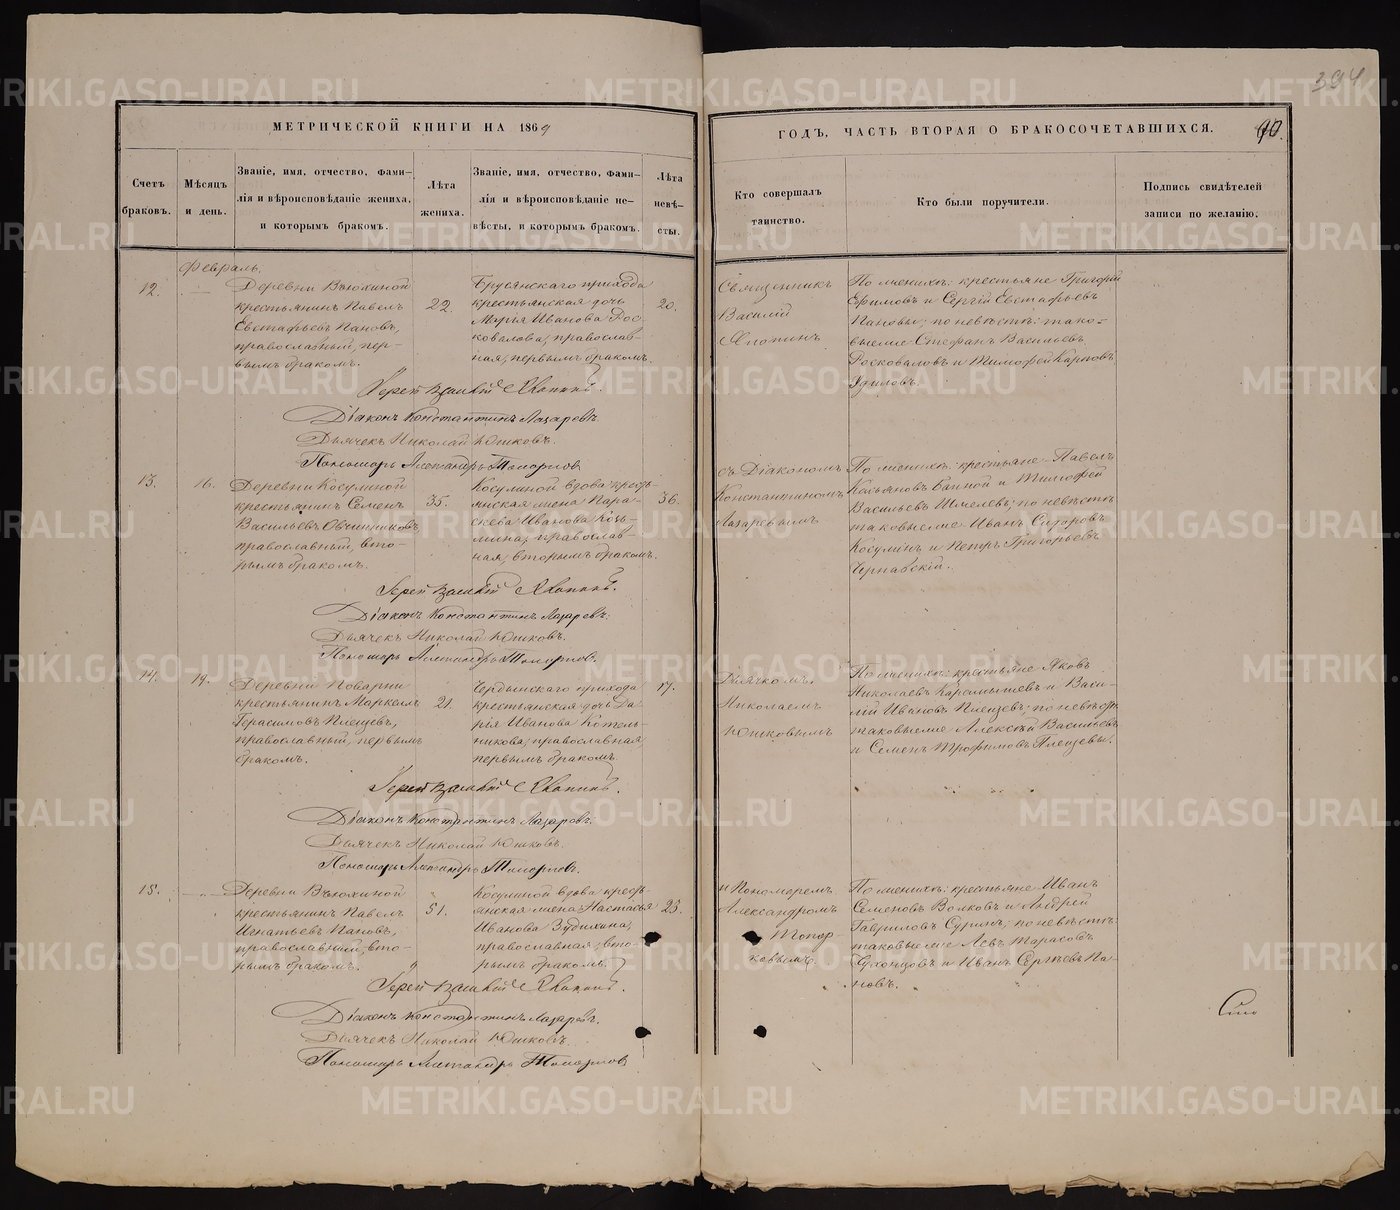 394
МЕТРИЧЕСКОЙ КНИГИ НА 1869
ГОДЪ, ЧАСТЬ ВТОРАЯ О БРАКОСОЧЕТАВШИХСЯ.
Счетъ
браковъ.
Мѣсяцъ
и день.
Званіе, имя, отчество, фами-
лія и вѣроисповѣданіе жениха,
и которымъ бракомъ.
Лѣта
жениха.
Званіе, имя, отчество, фами-
лія и вѣроисповѣданіе не-
вѣсты, и которымъ бракомъ.
Лѣта
невѣ-
сты.
Кто совершалъ
таинство.
Кто были поручители.
Подпись свидѣтелей
записи по желанію.
Февраль.
12.
Деревни Вьюхиной
крестьянинъ Павелъ
Евстафьевъ Пановъ,
православный, пер-
вымъ бракомъ.
22.
Брусянскаго прихода
крестьянская дочь
Марья Иванова Рос-
ковалова, православ-
ная, первымъ бракомъ.
20.
Священникъ
Василій
По женихѣ: крестьяне Григорій
Ефимовъ и Сергій Евстафьевъ
Пановы; по невѣстѣ: тако-
выеже Стефанъ Васильевъ
Росковаловъ и Тимофей Карповъ
Удиловъ.
Іерей Василій
Діаконъ Константинъ Лазаревъ.
Дьячекъ Николай Юшковъ.
Пономарь Александръ
13.
16.
Деревни Косулиной
крестьянинъ Семенъ
Васильевъ Овчинниковъ,
православный, вто-
рымъ бракомъ.
35.
Косулиной вдова кресть-
янская жена Пара-
скева Иванова Козь-
мина, православ-
ная, вторымъ бракомъ.
36.
съ Діакономъ
Константиномъ
Лазаревымъ
По женихѣ: крестьяне Павелъ
Касьяновъ Банной и Тимофей
Васильевъ Шмелевъ; по невѣстѣ
таковыеже Иванъ Сидоровъ
Косулинъ и Петръ Григорьевъ
Чернавскій.
Іерей Василій
Діаконъ Константинъ Лазаревъ.
Дьячекъ Николай Юшковъ.
Пономарь Александръ
14.
19.
Деревни Поварни
крестьянинъ Маркеллъ
Герасимовъ Плещевъ,
православный, первымъ
бракомъ.
21.
прихода
крестьянская дочь Да-
рія Иванова Котель-
никова, православная,
первымъ бракомъ.
17.
Дьячкомъ
Николаемъ
Юшковымъ
По женихѣ: крестьяне Яковъ
Николаевъ Карамышевъ и Васи-
лій Ивановъ Плещевъ; по невѣстѣ
таковыеже Алексѣй Васильевъ
и Семенъ Трофимовъ Плещевы.
Іерей Василій
Діаконъ Константинъ Лазаревъ.
Дьячекъ Николай Юшковъ.
Пономарь Александръ
15.
Деревни Вьюхиной
крестьянинъ Павелъ
Игнатьевъ Пановъ,
православный, вто-
рымъ бракомъ.
51.
Косулиной вдова кресть-
янская жена Настасья
Иванова Зудихина,
православная, вто-
рымъ бракомъ.
23.
и Пономаремъ
Александромъ
Топор-
ковымъ.
По женихѣ: крестьяне Иванъ
Семеновъ Волковъ и Андрей
Гавриловъ Суринъ; по невѣстѣ:
таковыеже Левъ Тарасовъ
Сухонцовъ и Иванъ Сергѣевъ Па-
новъ.
Іерей Василій
Діаконъ Константинъ Лазаревъ.
Дьячекъ Николай Юшковъ.
Пономарь Александръ
METRIKI.GASO-URAL.RU